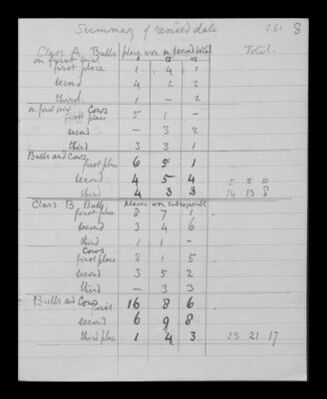 Summary of revised data 8
Class A Bulls place won on second trial Total
on first trial 1 2 3
first place 1 4 1
second 4 2 2
third 1 - 2
on first trial Cows
first place 5 1 -
second - 3 2
third 3 3 1
Bulls and Cows
first place 6 5 1
second 4 5 4
third 4 3 3 14 13 8
Class B Bulls places won subsequently
first place 8 7 1
second 3 4 6
third 1 1 -
Cows
first place 8 1 5
second 3 5 2
third - 3 3
Bulls and Cows
first 16 8 6
second 6 9 8
third place 1 4 3 23 21 17